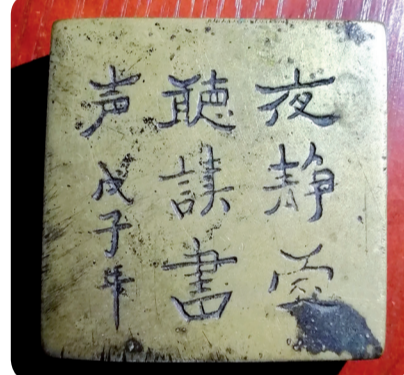 夜静
聽讀書
声 戊子年